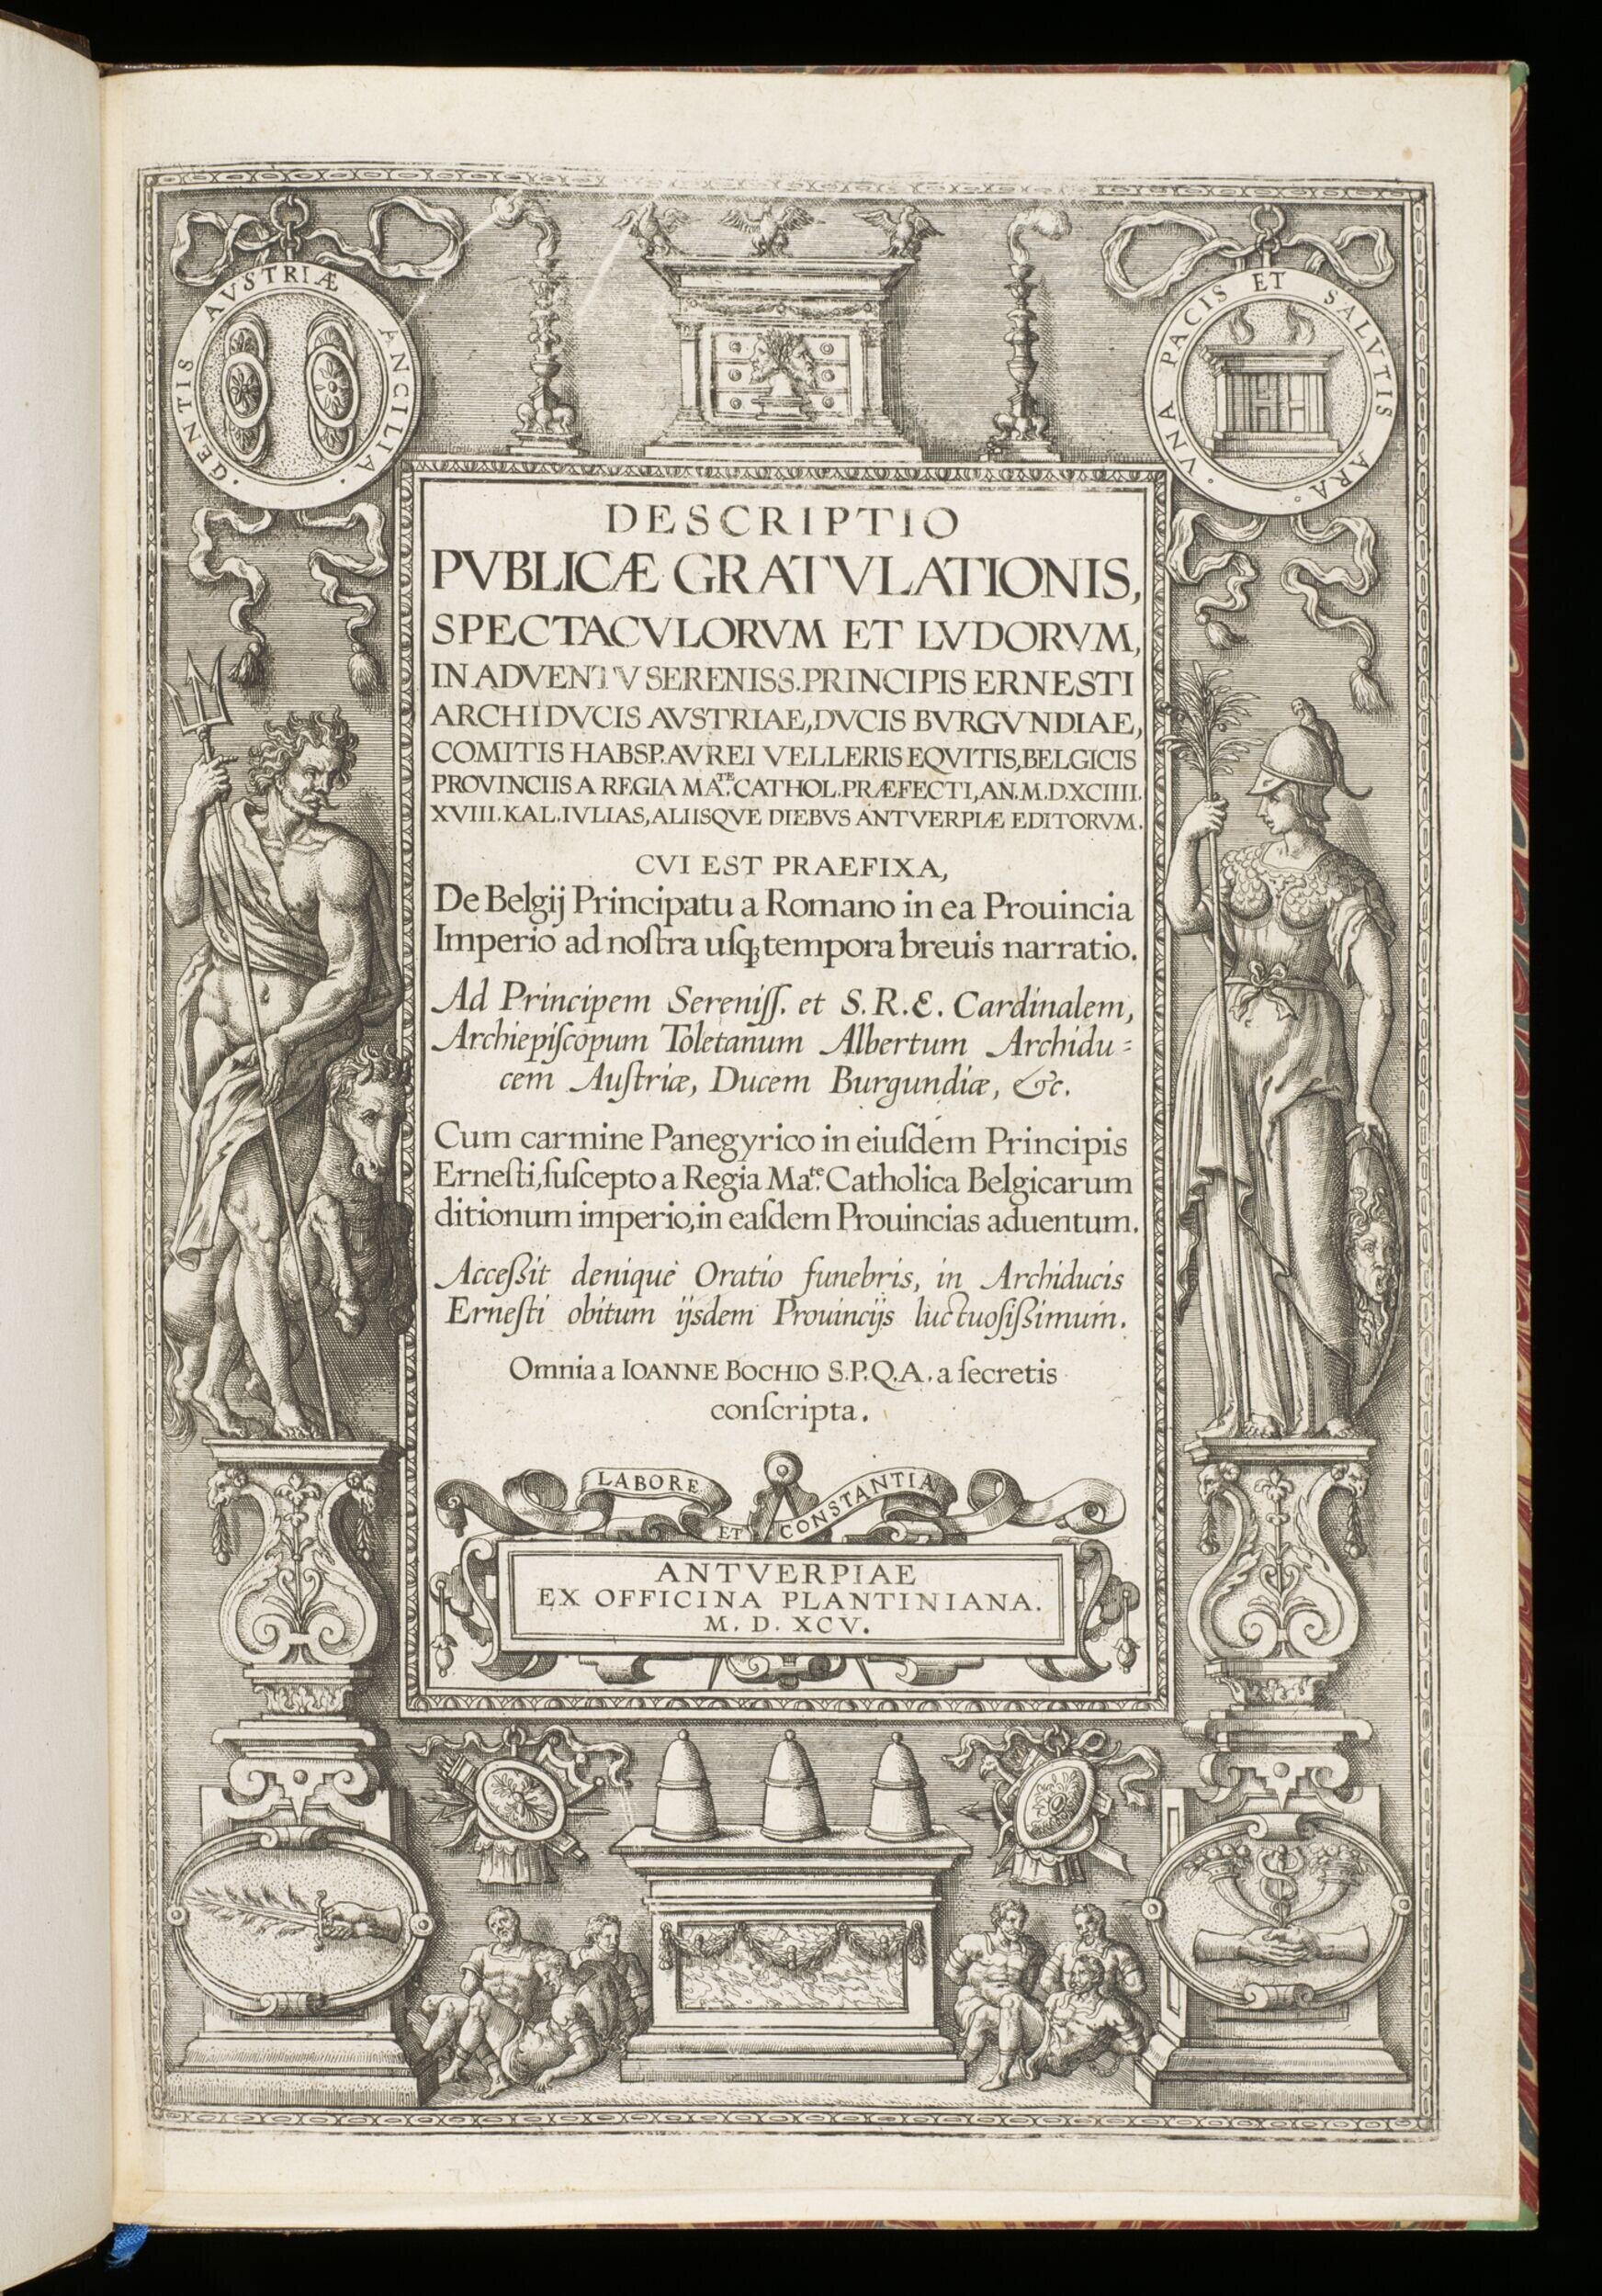 GENTIS AVSTRIÆ ANCILIA.
VNA PACIS ET SALVTIS ARA.
DESCRIPTIO
PVBLICÆ GRATVLATIONIS,
SPECTACVLORVM ET LVDORVM,
IN ADVENTV SERENISS.PRINCIPIS ERNESTI
ARCHIDVCIS AVSTRIAE,DVCIS BVRGVNDIAE,
COMITIS HABSP.AVREI VELLERIS EQVITIS,BELGICIS
PROVINCIIS A REGIA MA.TE CATHOL.PRÆFECTI,AN.M.D.XCIIII.
XVIII.KAL.IVLIAS,ALIISQVE DIEBVS ANTVERPIÆ EDITORVM.
CVI EST PRAEFIXA,
De Belgij Principatu a Romano in ea Prouincia
Imperio ad noſtra uſqꝫ tempora breuis narratio.
Ad Principem Sereniſſ. et S.R.E. Cardinalem,
Archiepiſcopum Toletanum Albertum Archidu=
cem Auſtriæ, Ducem Burgundiæ, &c.
Cum carmine Panegyrico in eiuſdem Principis
Erneſti,ſuſcepto a Regia Ma.te Catholica Belgicarum
ditionum imperio,in eaſdem Prouincias aduentum.
Acceßit denique Oratio funebris, in Archiducis
Erneſti obitum ijsdem Prouincijs luctuoſißimum.
Omnia a IOANNE BOCHIO S.P.Q.A. a ſecretis
conſcripta.
LABORE ET CONSTANTIA
ANTVERPIAE
EX OFFICINA PLANTINIANA.
M. D. XCV.